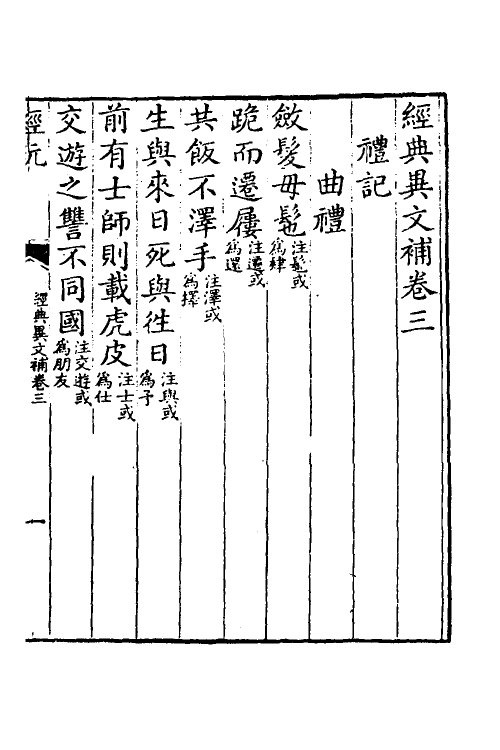 經典異文補卷三
禮記
曲禮
斂髮毋髢注髢或為肄
跪而遷屨注遷或為還
共飯不澤手注澤或為擇
生與來日死與往日注與或為予
前有士師則載虎皮注士或為仕
交遊之讐不同國注交遊或為朋友
經典異文補卷三
一